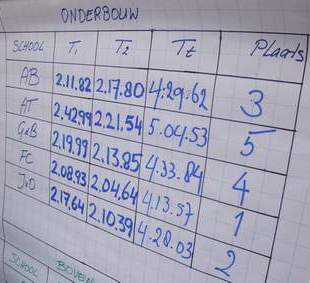 ONDERBOUW
SCHOOL T1 T2 Tt Plaats
AB 2.11.82 2.17.80 4:29.62 3
AT 2.42.99 2.21.54 5.04.53 5
GrB 2.19.99 2.13.85 4.33.84 4
FC 2.08.93 2.04.64 4.13.57 1
JvD 2.17.64 2.10.39 4.28.03 2
SCHOOL